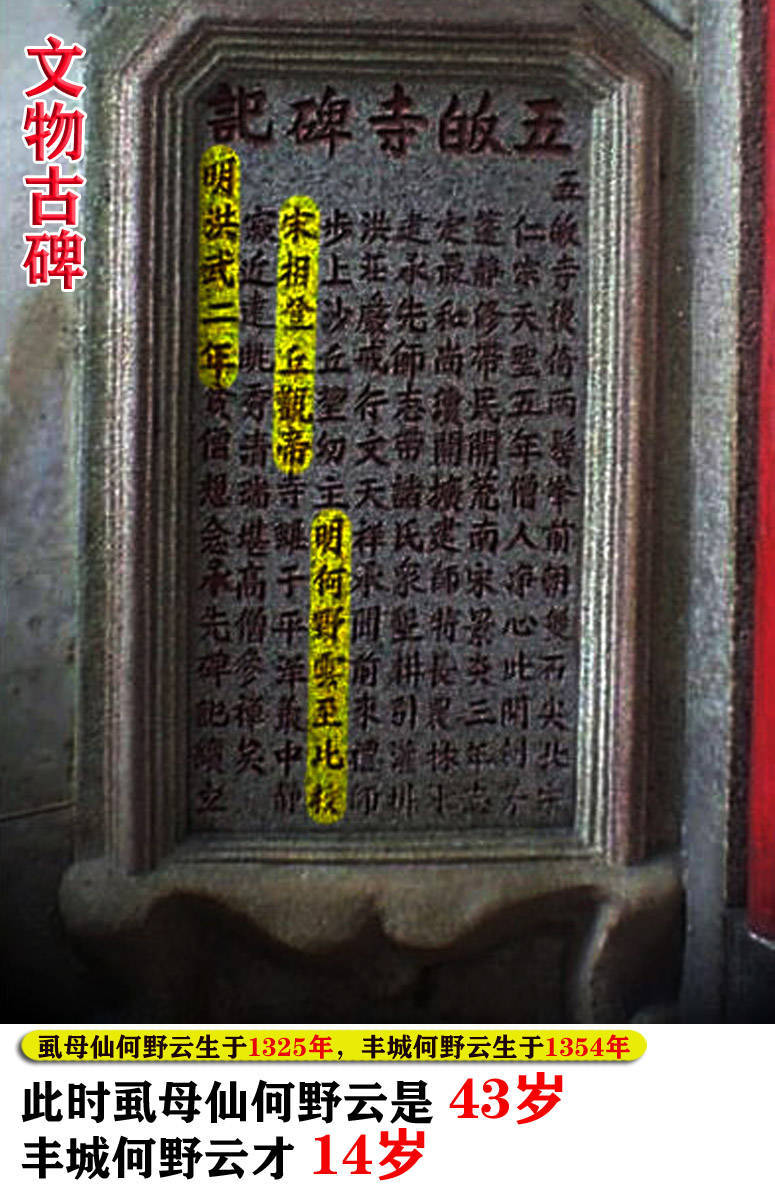 文物古碑
五皈寺碑記
五皈寺後倚兩髻峯前朝雙石尖北宋
仁宗天聖五年僧人淨心此開創芥
靜修帶民開荒南宋景炎三年志
定最和尚續開擴建師特長農林水
建承先師志帶諸民衆墾耕引灌排
洪莊嚴戒行文天祥承間前來禮師
步上沙丘望幼主明何野雲至此
宋相登丘觀帝寺雖于平年叢中靜
寂近建眺秀清瑞堪高僧參禪矣
明洪武二年貧僧想念承先碑記續立
虱母仙何野云生于1325年，丰城何野云生于1354年
此时虱母仙何野云是 43岁
丰城何野云才 14岁